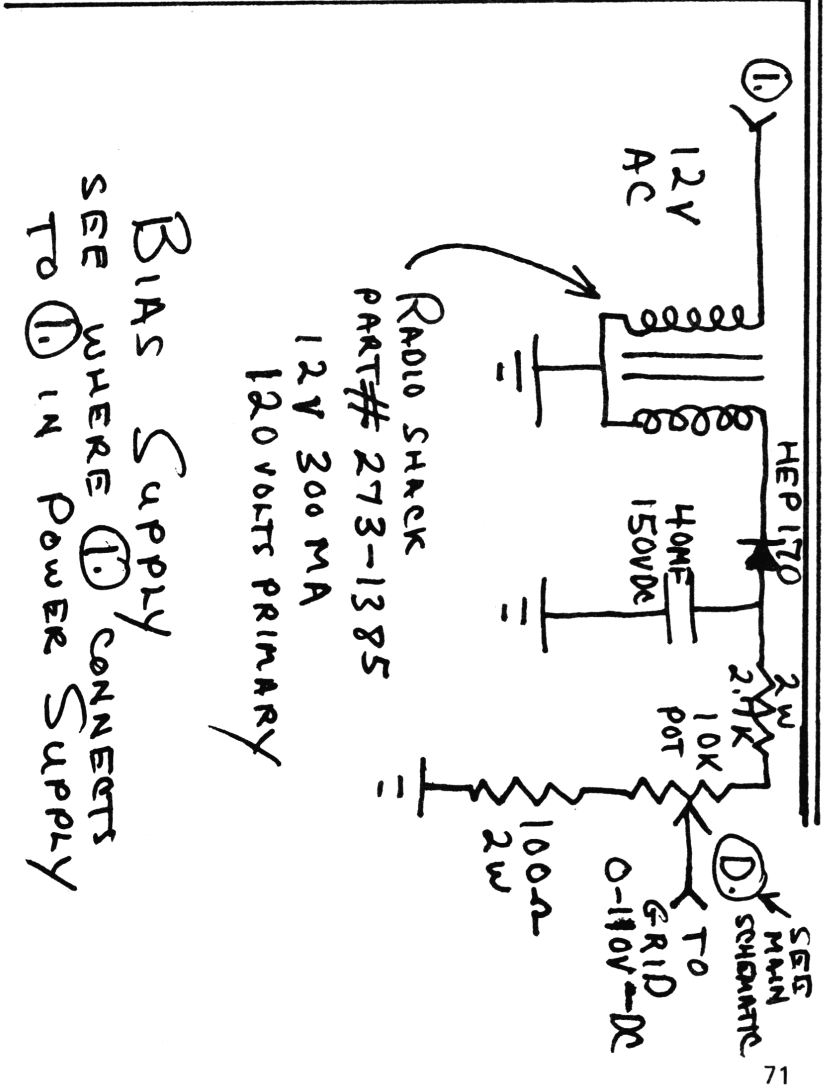 1.
12V
AC
HEP170
40MF
150VDC
2W
2.7K
10K
POT
100Ω
2W
D.
SEE
MAIN
SCHEMATIC
TO
GRID
0-110V-DC
RADIO SHACK
PART# 273-1385
12V 300 MA
120 VOLTS PRIMARY
BIAS SUPPLY
SEE WHERE 1. CONNECTS
TO 1. IN POWER SUPPLY
71